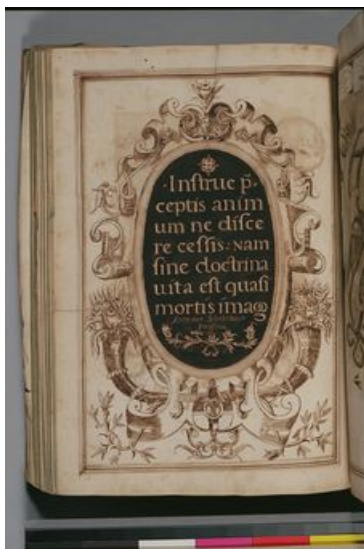 ·Instrue p̃·
ceptis anim
um ne disce
re cessis: Nam
sine doctrina
uita est quasi
mortis imago